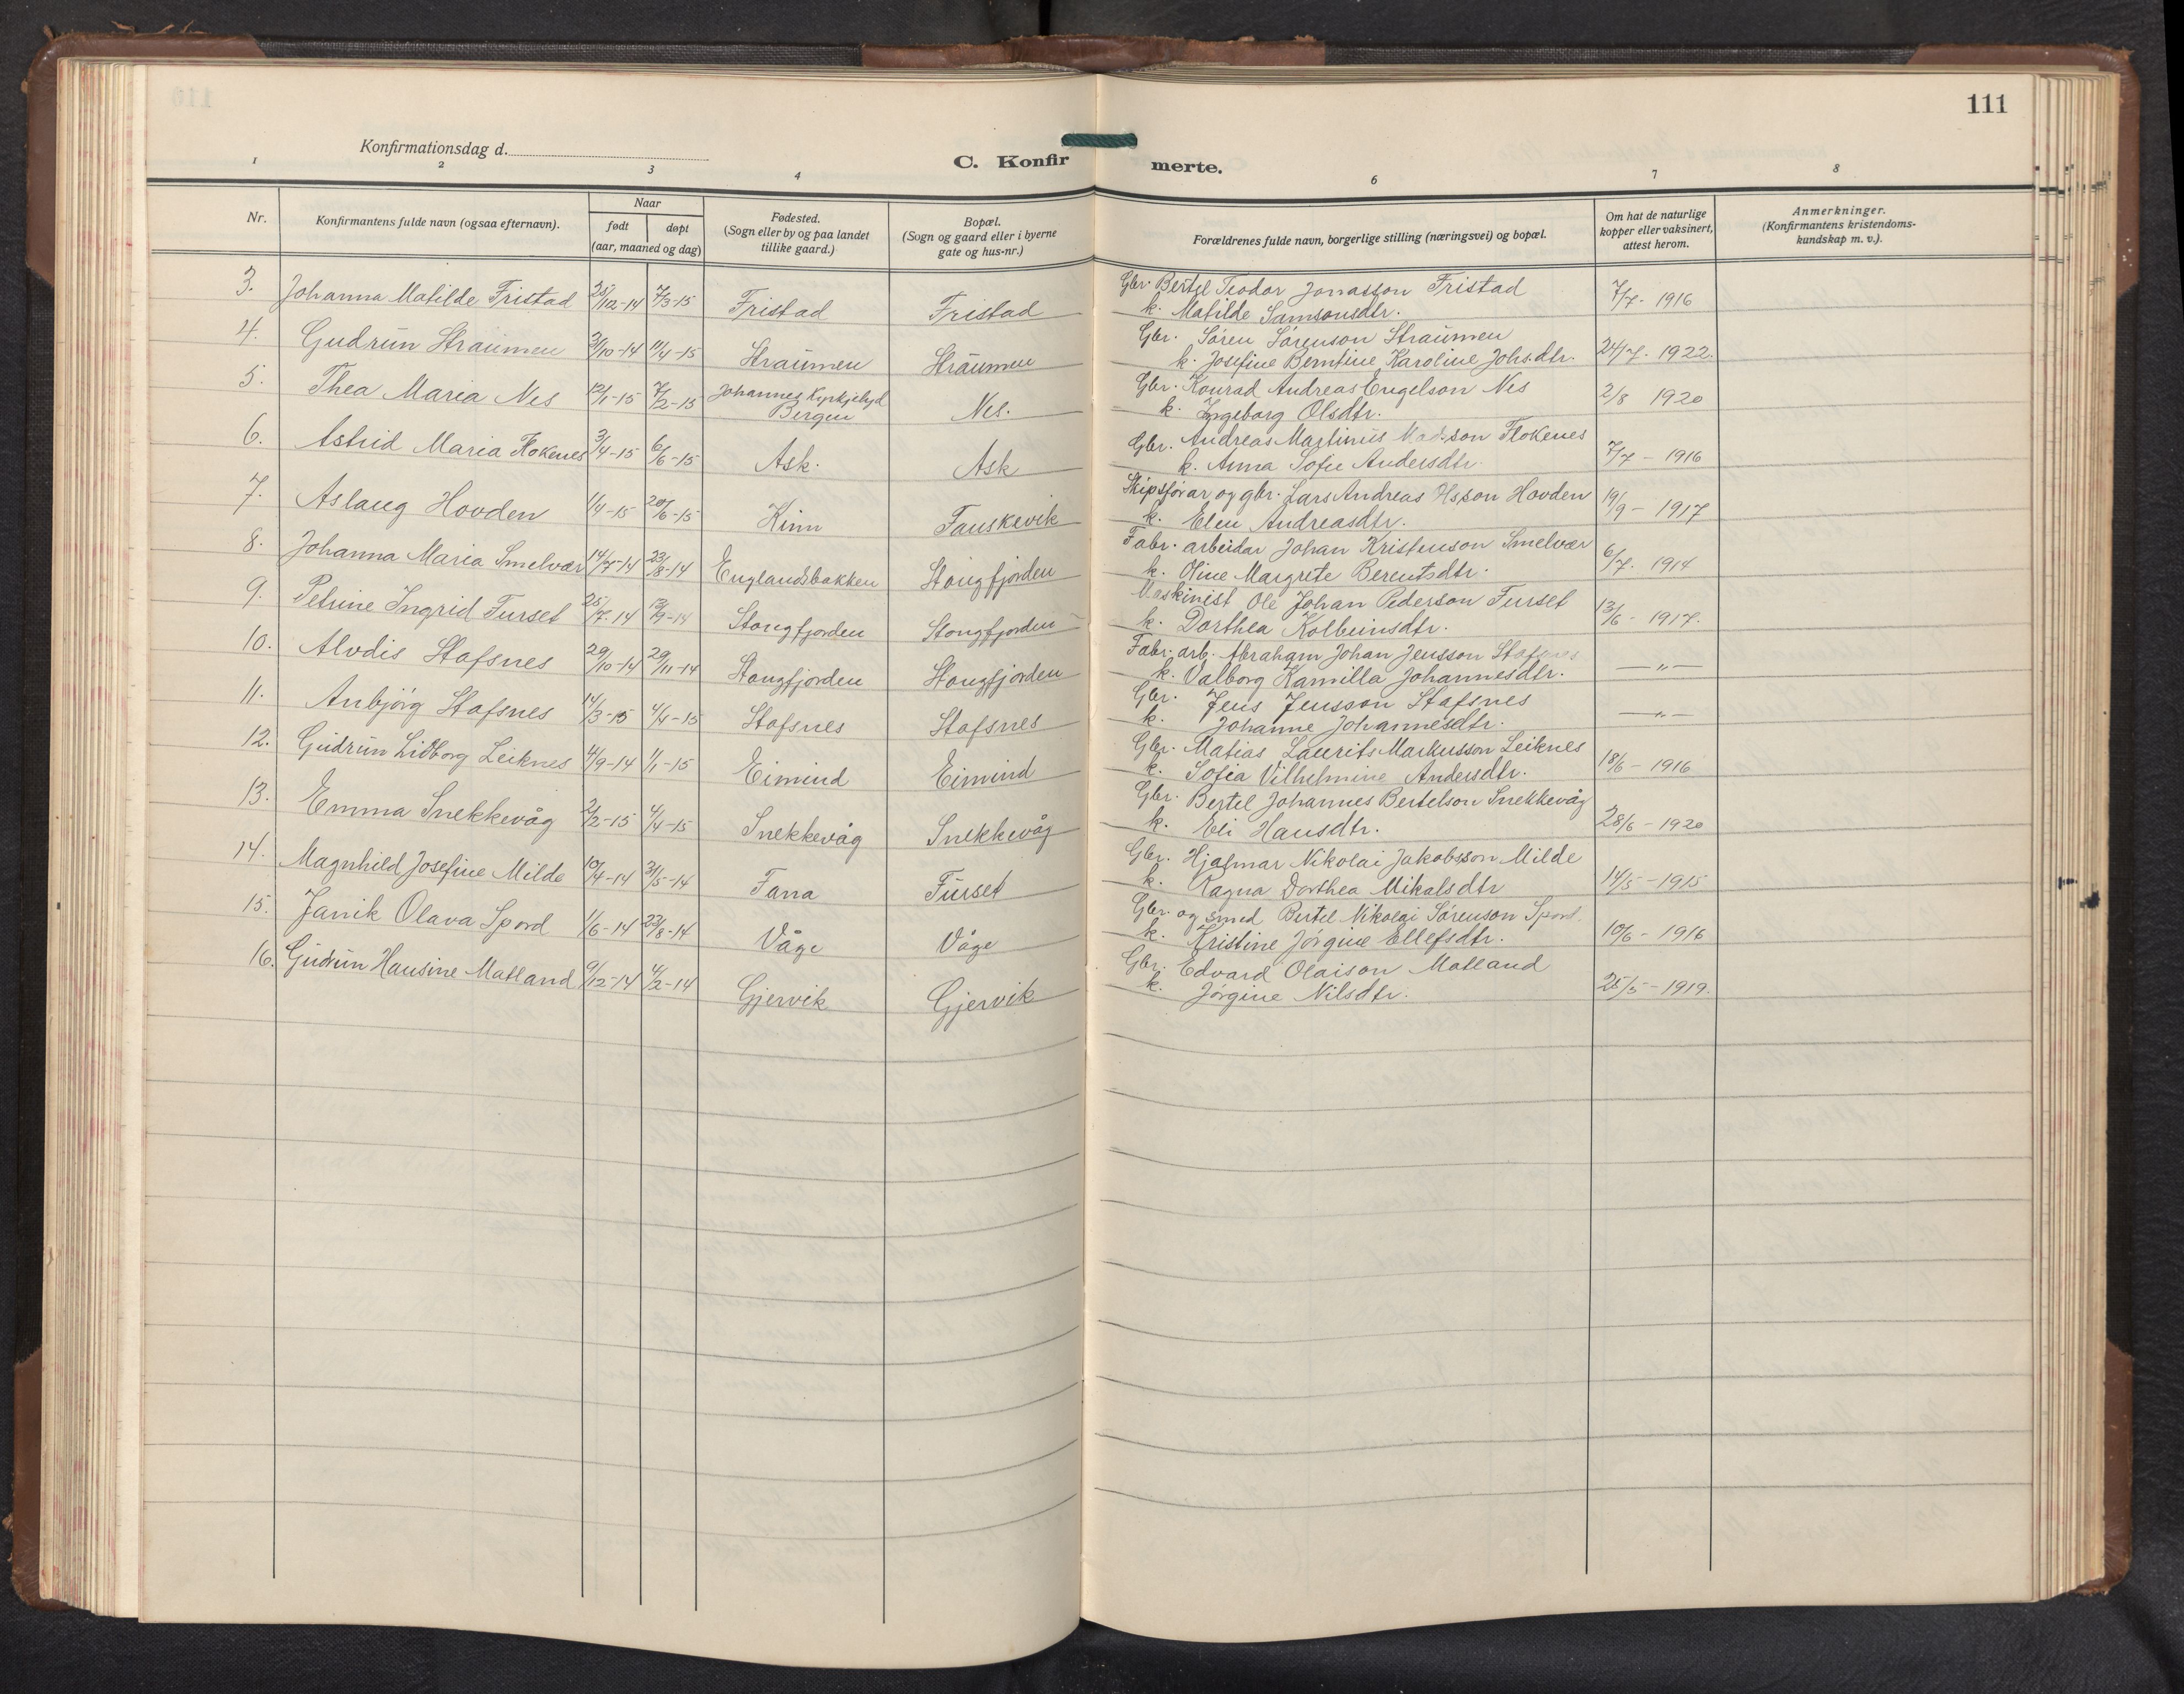 111
Konfirmationsdag d.
C. Konfirmerte.
1 2 3 4 6 7 8
Nr. Konfirmantens fulde navn (ogsaa efternavn). Naar født døpt (aar, maaned og dag) Fødested. (Sogn eller by og paa landet tillike gaard.) Bopæl. (Sogn og gaard eller i byerne gate og hus-nr.) Forældrenes fulde navn, borgerlige stilling (næringsvei) og bopæl. Om hat de naturlige kopper eller vaksinert, attest herom. Anmerkninger. (Konfirmantens kristendoms-kundskap m. v.).
3. Johanna Matilde Fristad 25/12-14 7/3-15 Fristad Fristad Gbr. Bertel Teodor Jonasson Fristad 7/7- 1916
k. Matilde Samsonsdtr.
4. Gudrun Straumen 31/10-14 11/4-15 Straumen Straumen Gbr. Søren Sørenson Straumen 24/7- 1922.
k. Josefine Berntine Karoline Johs.dtr.
5. Thea Maria Nes 12/1-15 7/2-15 Johannes Kyrkjebyd Bergen Nes. Gbr. Konrad Andreas Engelson Nes 2/8 1920
k. Ingeborg Olsdtr.
6. Astrid Maria Flokenes 3/4-15 6/6-15 Ask. Ask Gbr. Andreas Martinus Madson Flokenes 7/7 - 1916
k. Anna Sofie Andersdtr.
7. Aslaug Hovden 1/4-15 20/6-15 Kinn Fauskevik Skipsførar og gbr. Lars Andreas Olsson Hovden 19/9 - 1917
k. Elen Andreasdtr.
8. Johanna Maria Smelvær 14/7-14 23/8-14 Englandsbakken Stongfjorden Fabr. arbeidar Johan Kristenson Smelvær 6/7. 1914
k. Oline Margrete Berentsdtr.
9. Petrine Ingrid Furset 25/7-14 13/9-14 Stongfjorden Stongfjorden Maskinist Ole Johan Pederson Furset 13/6 - 1917.
k. Dorthea Kolbeinsdtr.
10. Alvdis Stafsnes 29/10-14 29/11-14 Stongfjorden Stongfjorden Fabr. arb. Abraham Johan Jensson Stafsnes — „ —
k. Valborg Kamilla Johannesdtr.
11. Anbjörg Stafsnes 14/3-15 4/4-15 Stafsnes Stafsnes Gbr. Jens Jensson Stafsnes — „ —
k. Johanne Johannesdtr.
12. Gudrun Lidborg Leiknes 4/9-14 1/1-15 Eimind Eimind Gbr. Matias Laurits Markusson Leiknes 18/6 - 1916
k. Sofia Vilhelmine Andersdtr.
13. Emma Snekkevåg 2/2-15 4/4-15 Snekkevåg Snekkevåg Gbr. Bertel Johannes Bertelson Snekkevåg 28/6 - 1920
k. Eli Hansdtr.
14. Magnhild Josefine Milde 10/4-14 31/5-14 Fana Furset Gbr. Hjalmar Nikolai Jakobsson Milde 14/5 - 1915
k. Ragna Dorthea Mikalsdtr
15. Janik Olava Spord 1/6-14 23/8-14 Våge Våge Gbr. og smed Bertel Nikolai Sørenson Spord. 10/6 - 1916
k. Kristine Jørgine Ellefsdtr.
16. Gudrun Hansine Matland 9/12-14 4/2-14 Gjervik Gjervik Gbr. Edvard Olaison Matland 25/5 - 1919.
k. Jørgine Nilsdtr.